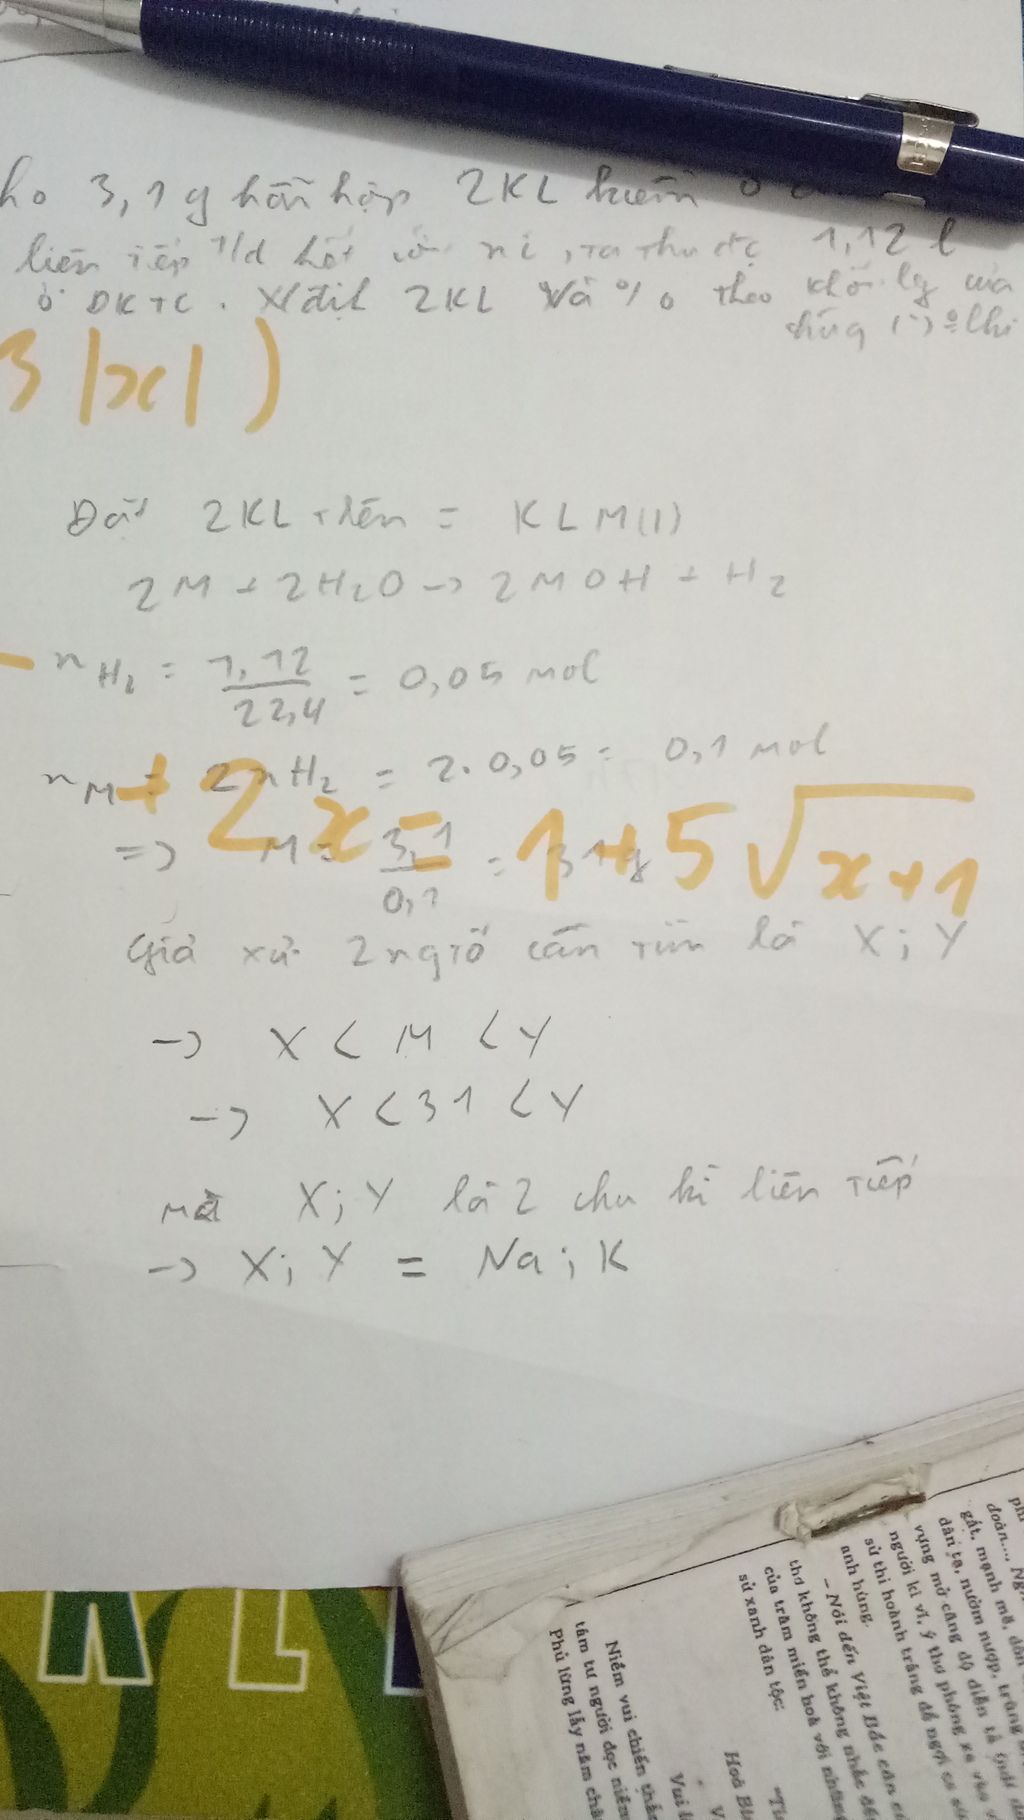 3,1 g hỗn hợp 2KL kiềm ở
liên tiếp t/d hết , ta thu đc 1,12 l
ở ĐKTC. Xđịh 2KL và % theo khối lg của
3 |x| )
Đặt 2KL trên = KL M(I)
2M + 2H₂O -> 2MOH + H₂
- n H₂ = 1,12/22,4 = 0,05 mol
n M = 2nH₂ = 2.0,05 = 0,1 mol
+ 2x = 1 + 5√x+1
=> M = 3,1/0,1 = 31g
Giả xử 2 ngtố cần tìm là X; Y
-> X < M < Y
-> X < 31 < Y
mà X; Y là 2 chu kì liên tiếp
-> X; Y = Na; K
KL
đoàn....
gắt, mạnh mẽ, dồn
dân tạ, nườm nượp, trùng
vựng mở căng độ diễn tả
người kì vĩ, ý thơ phóng xa vào
sử thi hoành tráng để ngợi ca
anh hùng.
– Nói đến Việt Bắc căn cứ
thơ không thể không nhắc đến
của trăm miền hoà với những
sử xanh dân tộc:
Niềm vui chiến thắng
tâm tư người đọc niềm
Phủ lừng lẫy năm châu
"Tin
Hoà Bình
Vui